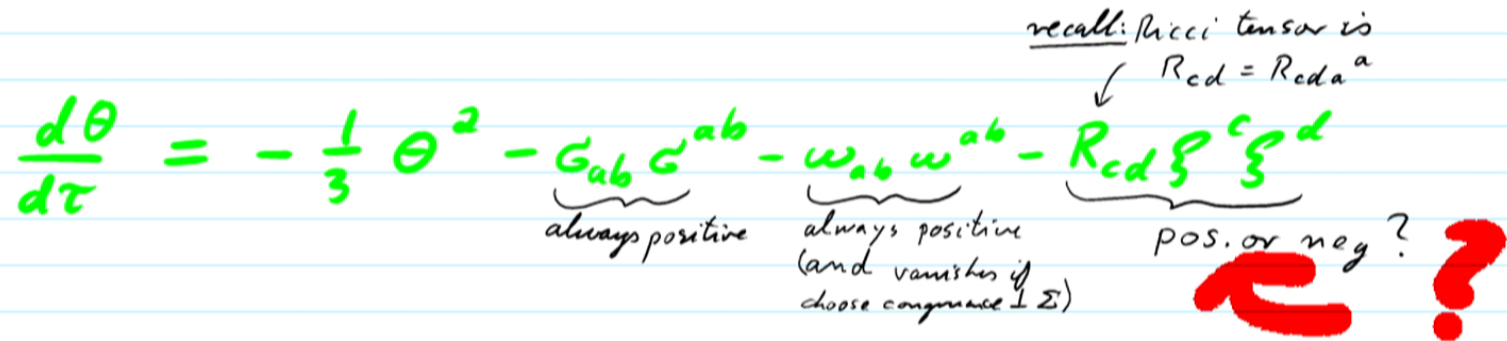 recall: Ricci tensor is
R_cd = R_cda^a
dθ/dτ = - 1/3 θ² - σ_ab σ^ab - ω_ab ω^ab - R_cd ξ^c ξ^d
always positive
always positive
(and vanishes if
choose congruence ⊥ Σ)
pos. or neg ?
?